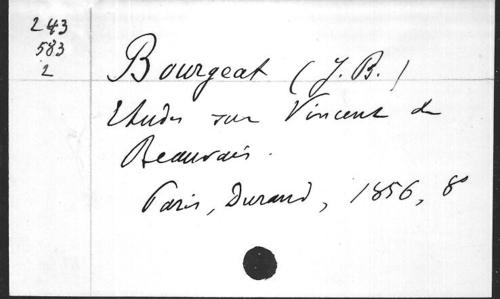 243
583
2
Bourgeat (J. B.)
Etudes sur Vincent de
Beauvais.
Paris, Durand, 1856, 8°